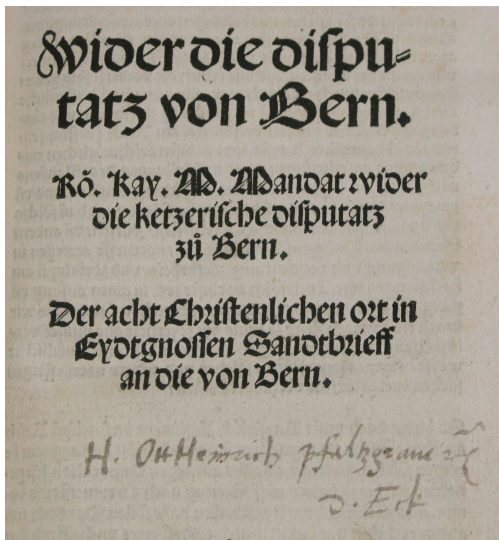 Wider die dispu⸗
tatz von Bern.
Rö. Kay. M. Mandat wider
die ketzerische disputatz
zů Bern.
Der acht Christenlichen ort in
Eydtgnossen Sandtbrieff
an die von Bern.
H. OttHeinrich pfaltzgraue
D. Eck